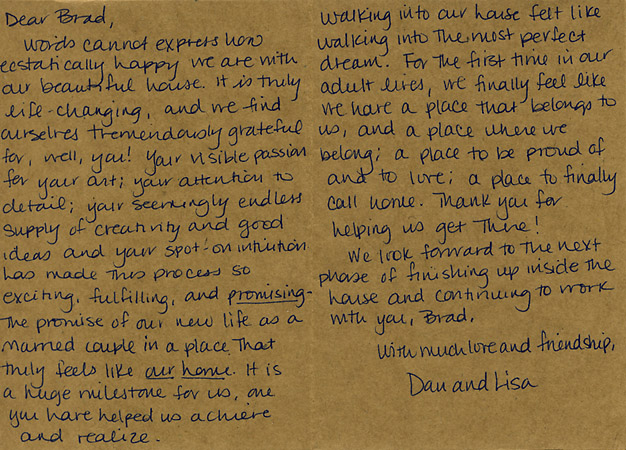 Dear Brad,
Words cannot express how
ecstatically happy we are with
our beautiful house. It is truly
life-changing, and we find
ourselves tremendously grateful
for, well, you! Your visible passion
for your art; your attention to
detail; your seemingly endless
supply of creativity and good
ideas and your spot-on intuition
has made this process so
exciting, fulfilling, and promising-
the promise of our new life as a
married couple in a place that
truly feels like our home. It is
a huge milestone for us, one
you have helped us achieve
and realize.
Walking into our house felt like
walking into the most perfect
dream. For the first time in our
adult lives, we finally feel like
we have a place that belongs to
us, and a place where we
belong; a place to be proud of
and to love; a place to finally
call home. Thank you for
helping us get there!
We look forward to the next
phase of finishing up inside the
house and continuing to work
with you, Brad.
With much love and friendship,
Dan and Lisa